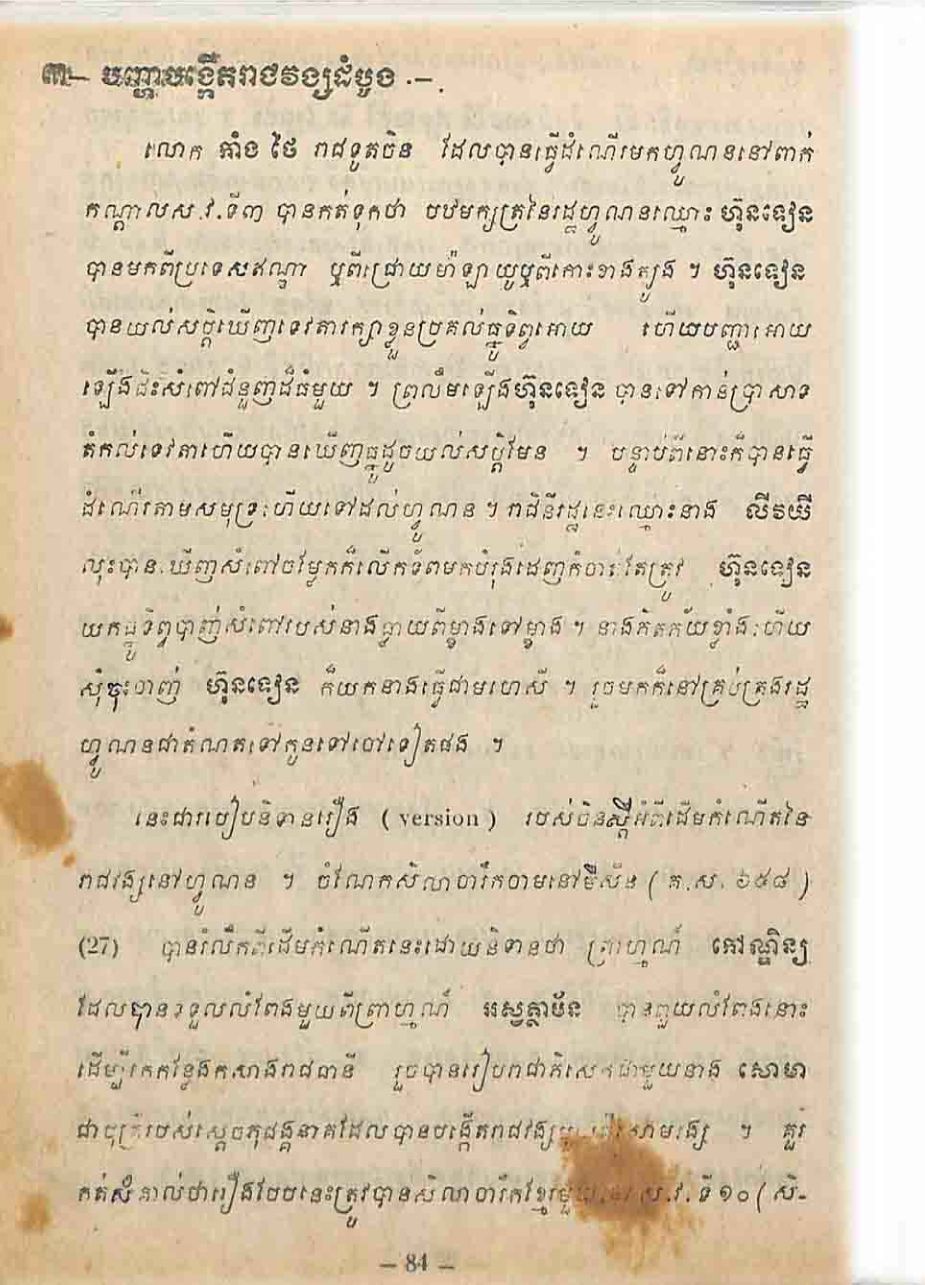 ៣- បញ្ហាបង្កើតរាជវង្សដំបូង .-
លោក កាំង ថៃ រាជទូតចិន ដែលបានធ្វើដំណើរមកហ្វូណននៅពាក់
កណ្តាលស.វ.ទី៣ បានកត់ទុកថា បឋមក្សត្រនៃរដ្ឋហ្វូណនឈ្មោះ ហ៊ុនទៀន
បានមកពីប្រទេសឥណ្ឌា ឬពីជ្រោយម៉ាឡាយូឬពីកោះខាងត្បូង ។ ហ៊ុនទៀន
បានយល់សប្តិឃើញទេវតារក្សាខ្លួនប្រគល់ធ្នូទិព្វអោយ ហើយបញ្ជាអោយ
ឡើងជិះសំពៅជំនួញដ៏ធំមួយ ។ ព្រលឹមឡើងហ៊ុនទៀន បានទៅកាន់ប្រាសាទ
តំកល់ទេវតាហើយបានឃើញធ្នូដូចយល់សប្តិមែន ។ បន្ទាប់ពីនោះក៏បានធ្វើ
ដំណើរតាមសមុទ្រហើយទៅដល់ហ្វូណន ។ រាជិនីរដ្ឋនេះឈ្មោះនាង លីវយី
លុះបានឃើញសំពៅចម្លែកក៏លើកទ័ពមកបំរុងដេញកំចាត់តែត្រូវ ហ៊ុនទៀន
យកធ្នូទិព្វបាញ់សំពៅរបស់នាងធ្លាយពីម្ខាងទៅម្ខាង ។ នាងកិតភ័យខ្លាំងហើយ
សុំចុះចាញ់ ហ៊ុនទៀន ក៏យកនាងធ្វើជាមហេសី ។ រួចមកក៏នៅគ្រប់គ្រងរដ្ឋ
ហ្វូណនជាតំណតទៅកូនទៅចៅទៀតផង ។
នេះជារបៀបនិទានរឿង ( version ) របស់ចិនស្តីអំពីដើមកំណើតនៃ
រាជវង្សនៅហ្វូណន ។ ចំណែកសិលាចារឹកចាមនៅមីសឺន ( គ.ស. ៦៥៨ )
(27) បានរំលឹកពីដើមកំណើតនេះដោយនិទានថា ព្រាហ្មណ៍ កៅណ្ឌិន្យ
ដែលបានទទួលលំពែងមួយពីព្រាហ្មណ៍ អស្វត្ថាម័ន បានពួយលំពែងនោះ
ដើម្បីរកកន្លែងកសាងរាជធានី រួចបានរៀបរាជាភិសេកជាមួយនាង សោមា
ជាបុត្រីរបស់ស្តេចភុជង្គនាគដែលបានបង្កើតរាជវង្ស សោមវង្ស ។ គួរ
កត់សំគាល់ថារឿងបែបនេះត្រូវបានសិលាចារឹកខ្មែរមួយ ស.វ.ទី១០ ( សិ-
– 84 –